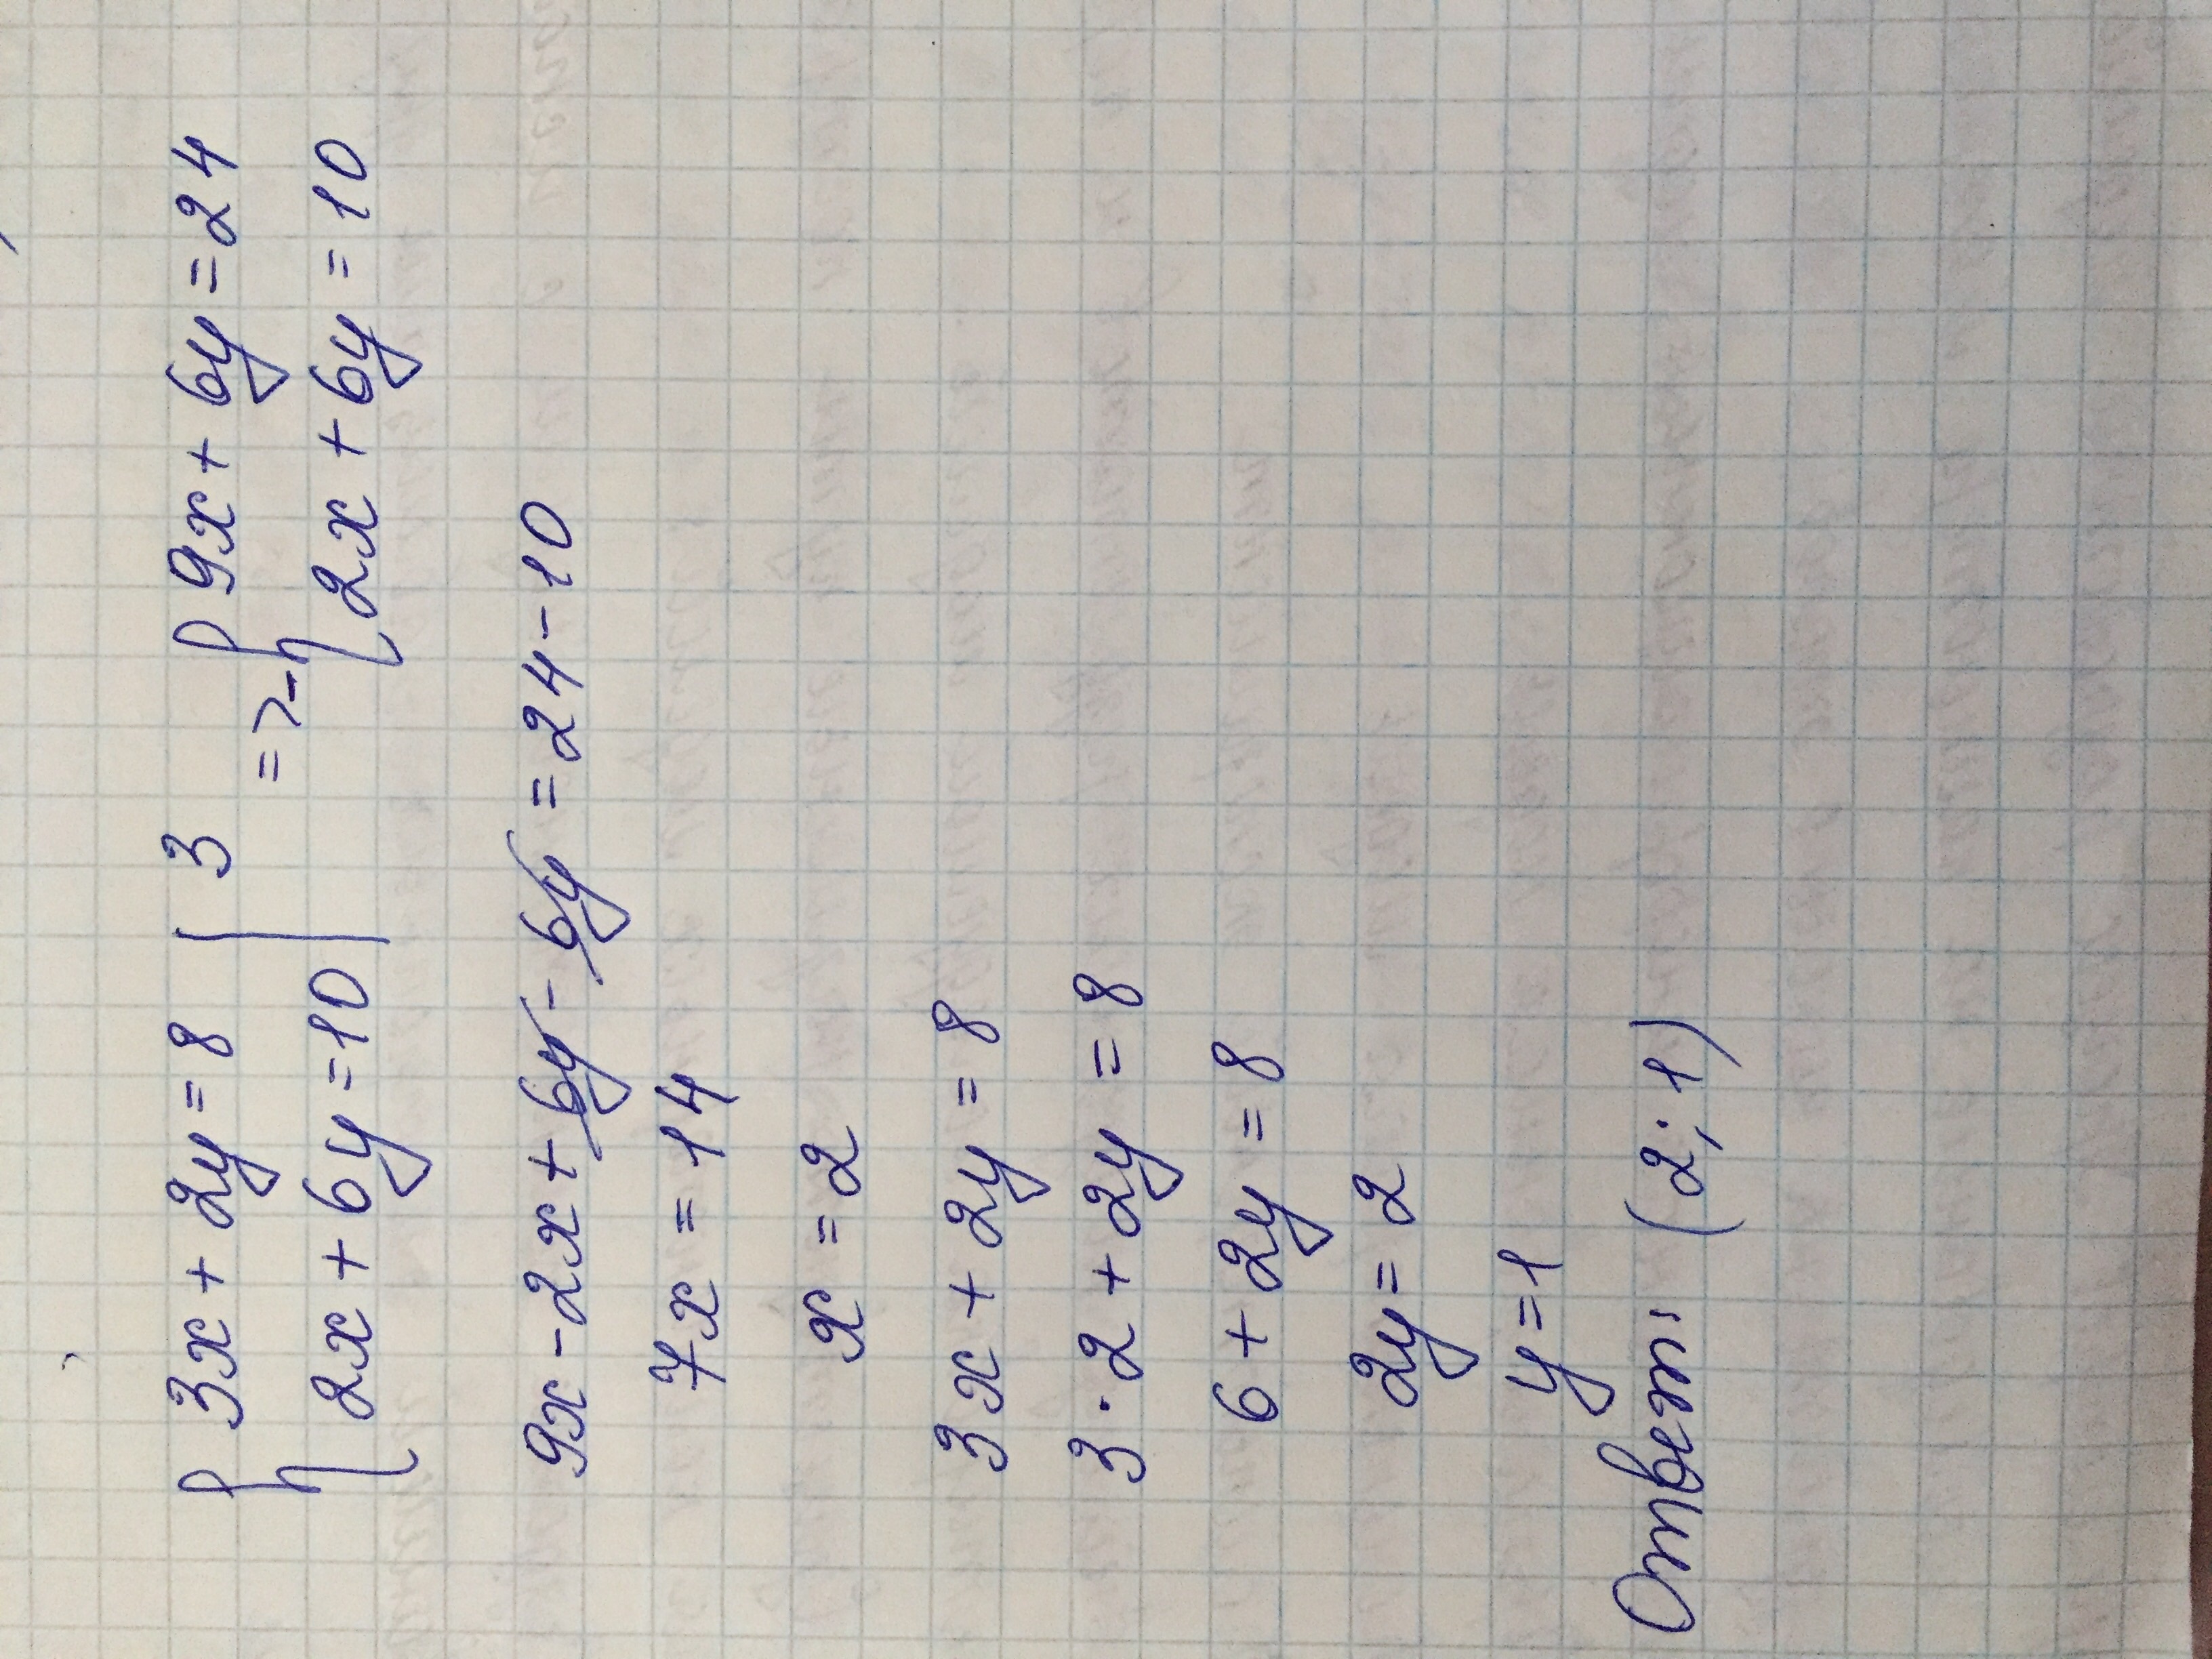 { 3x + 2y = 8 | 3 => - { 9x + 6y = 24
2x + 6y = 10 | 2x + 6y = 10
9x - 2x + 6y - 6y = 24 - 10
7x = 14
x = 2
3x + 2y = 8
3 · 2 + 2y = 8
6 + 2y = 8
2y = 2
y = 1
Ответ: (2; 1)